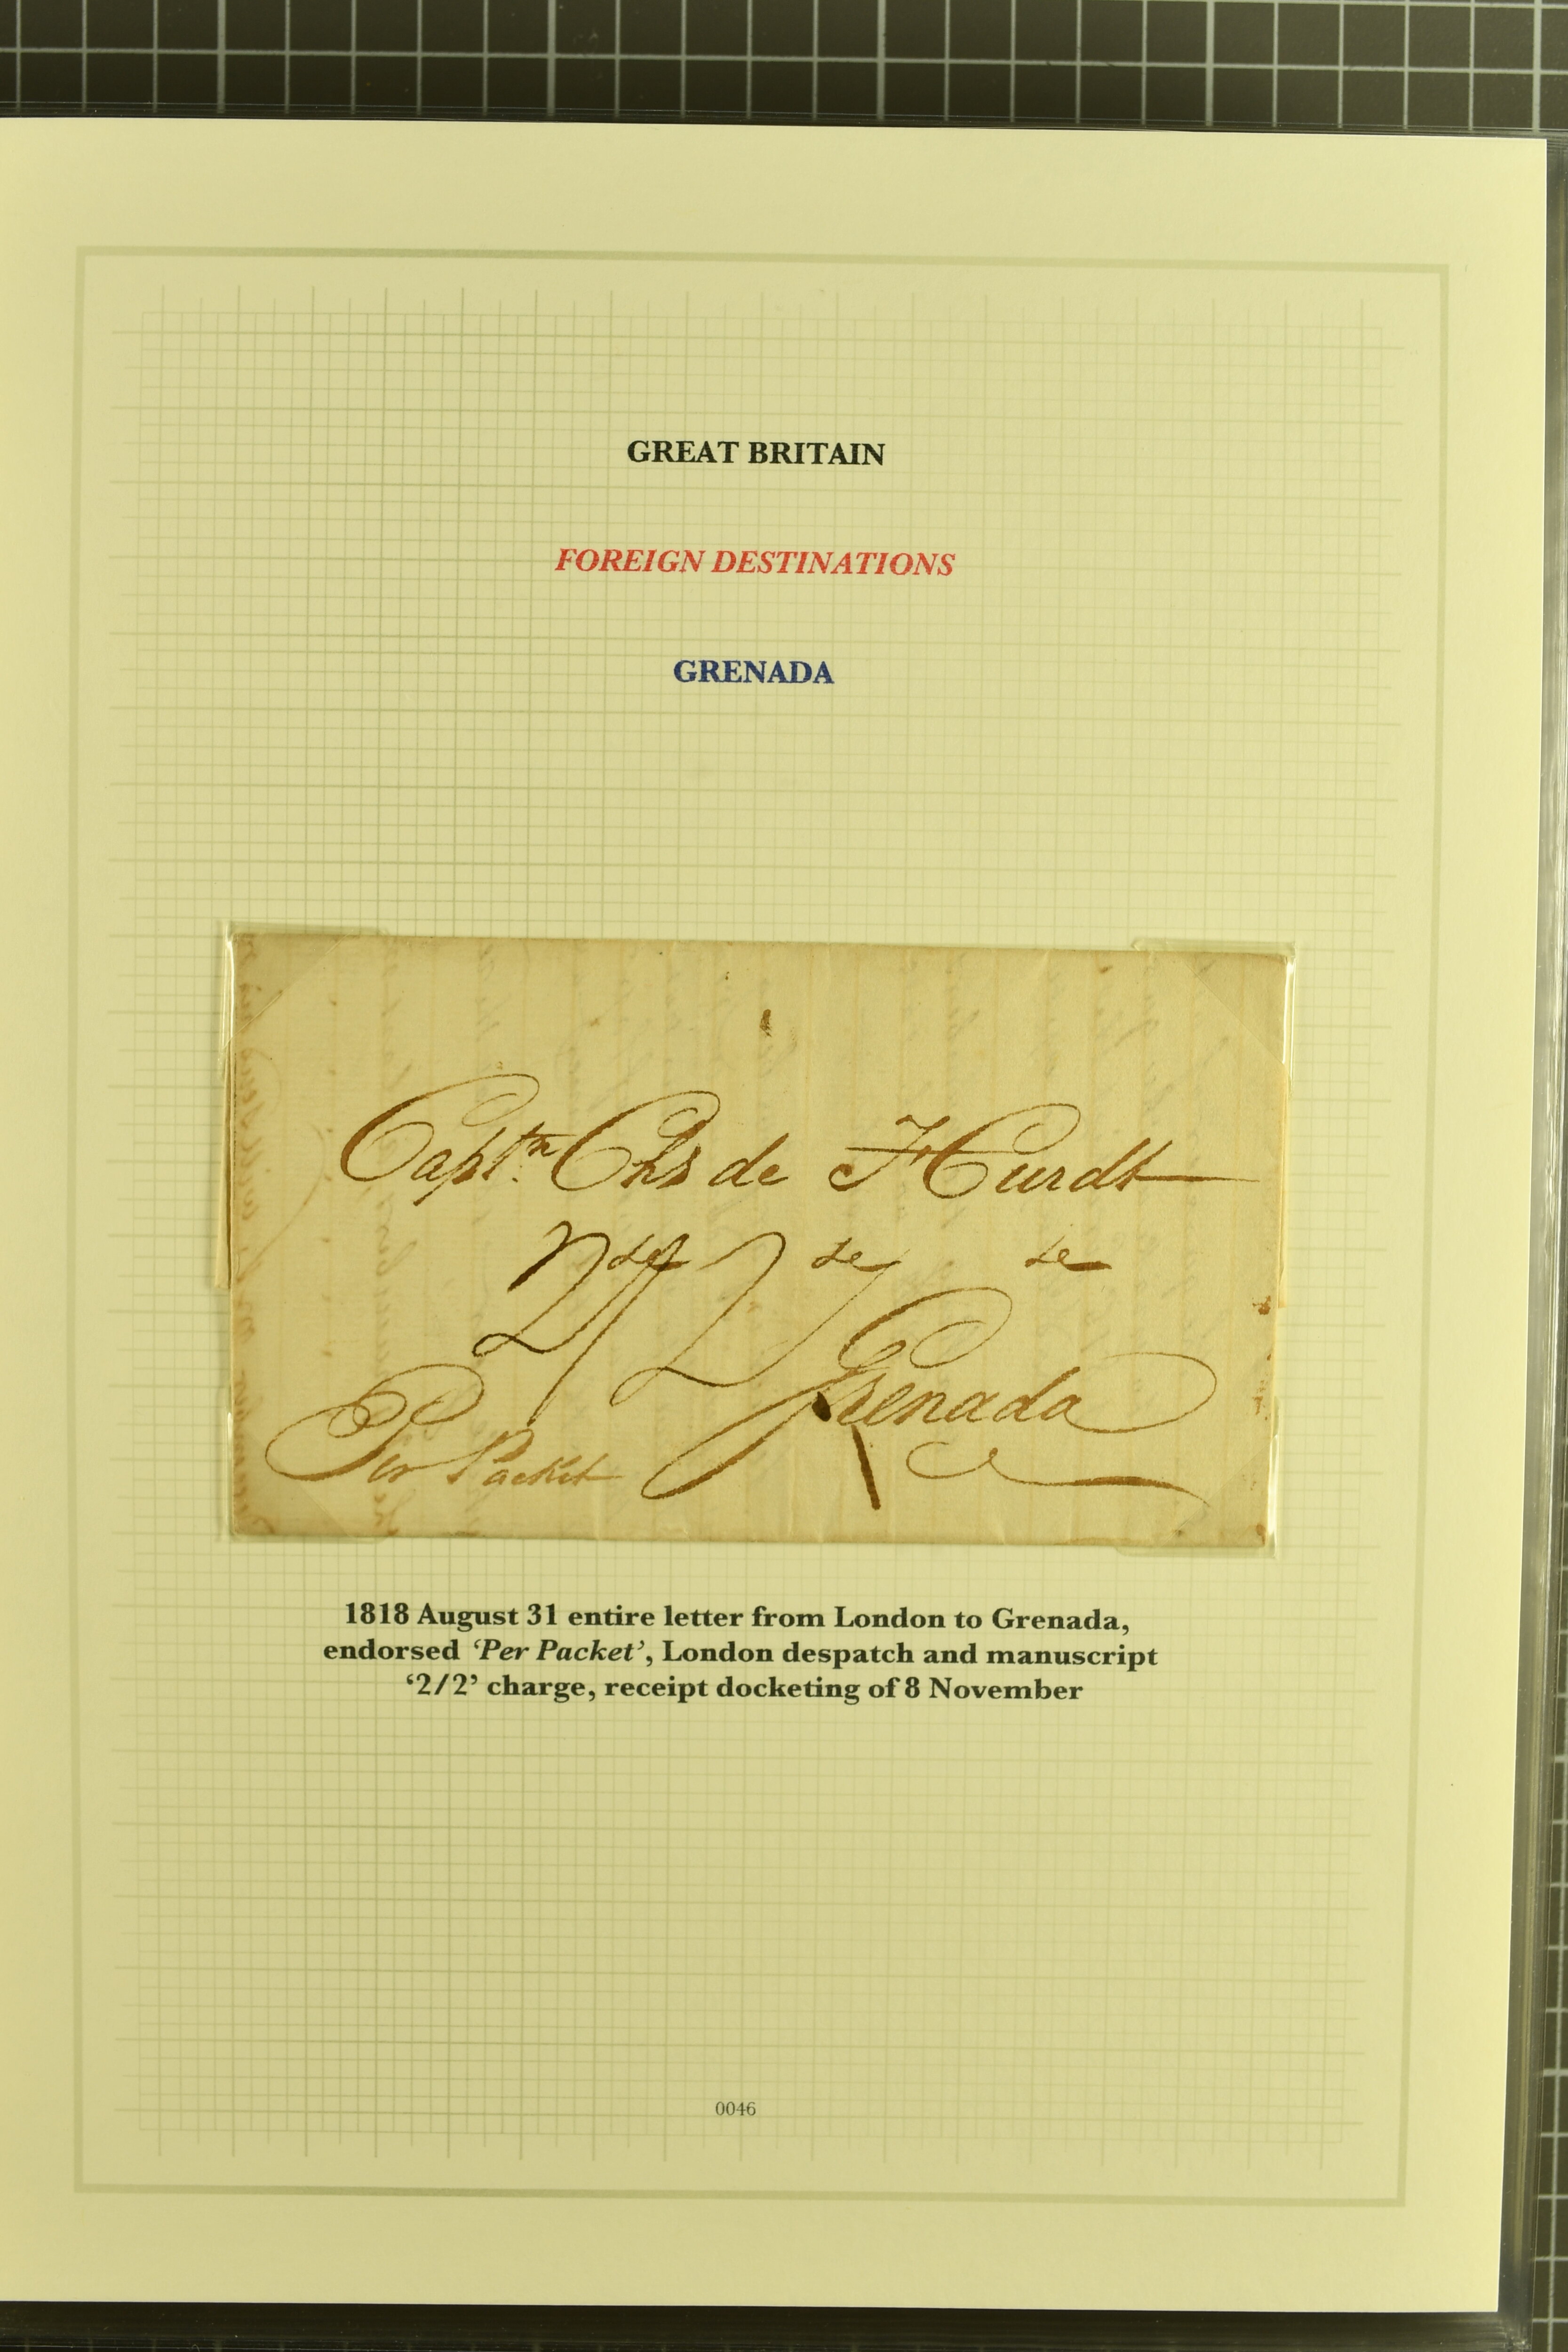 GREAT BRITAIN
FOREIGN DESTINATIONS
GRENADA
Captn. Chs de H Curdt
2/2
Grenada
Per Packet
1818 August 31 entire letter from London to Grenada,
endorsed ‘Per Packet’, London despatch and manuscript
‘2/2’ charge, receipt docketing of 8 November
0046